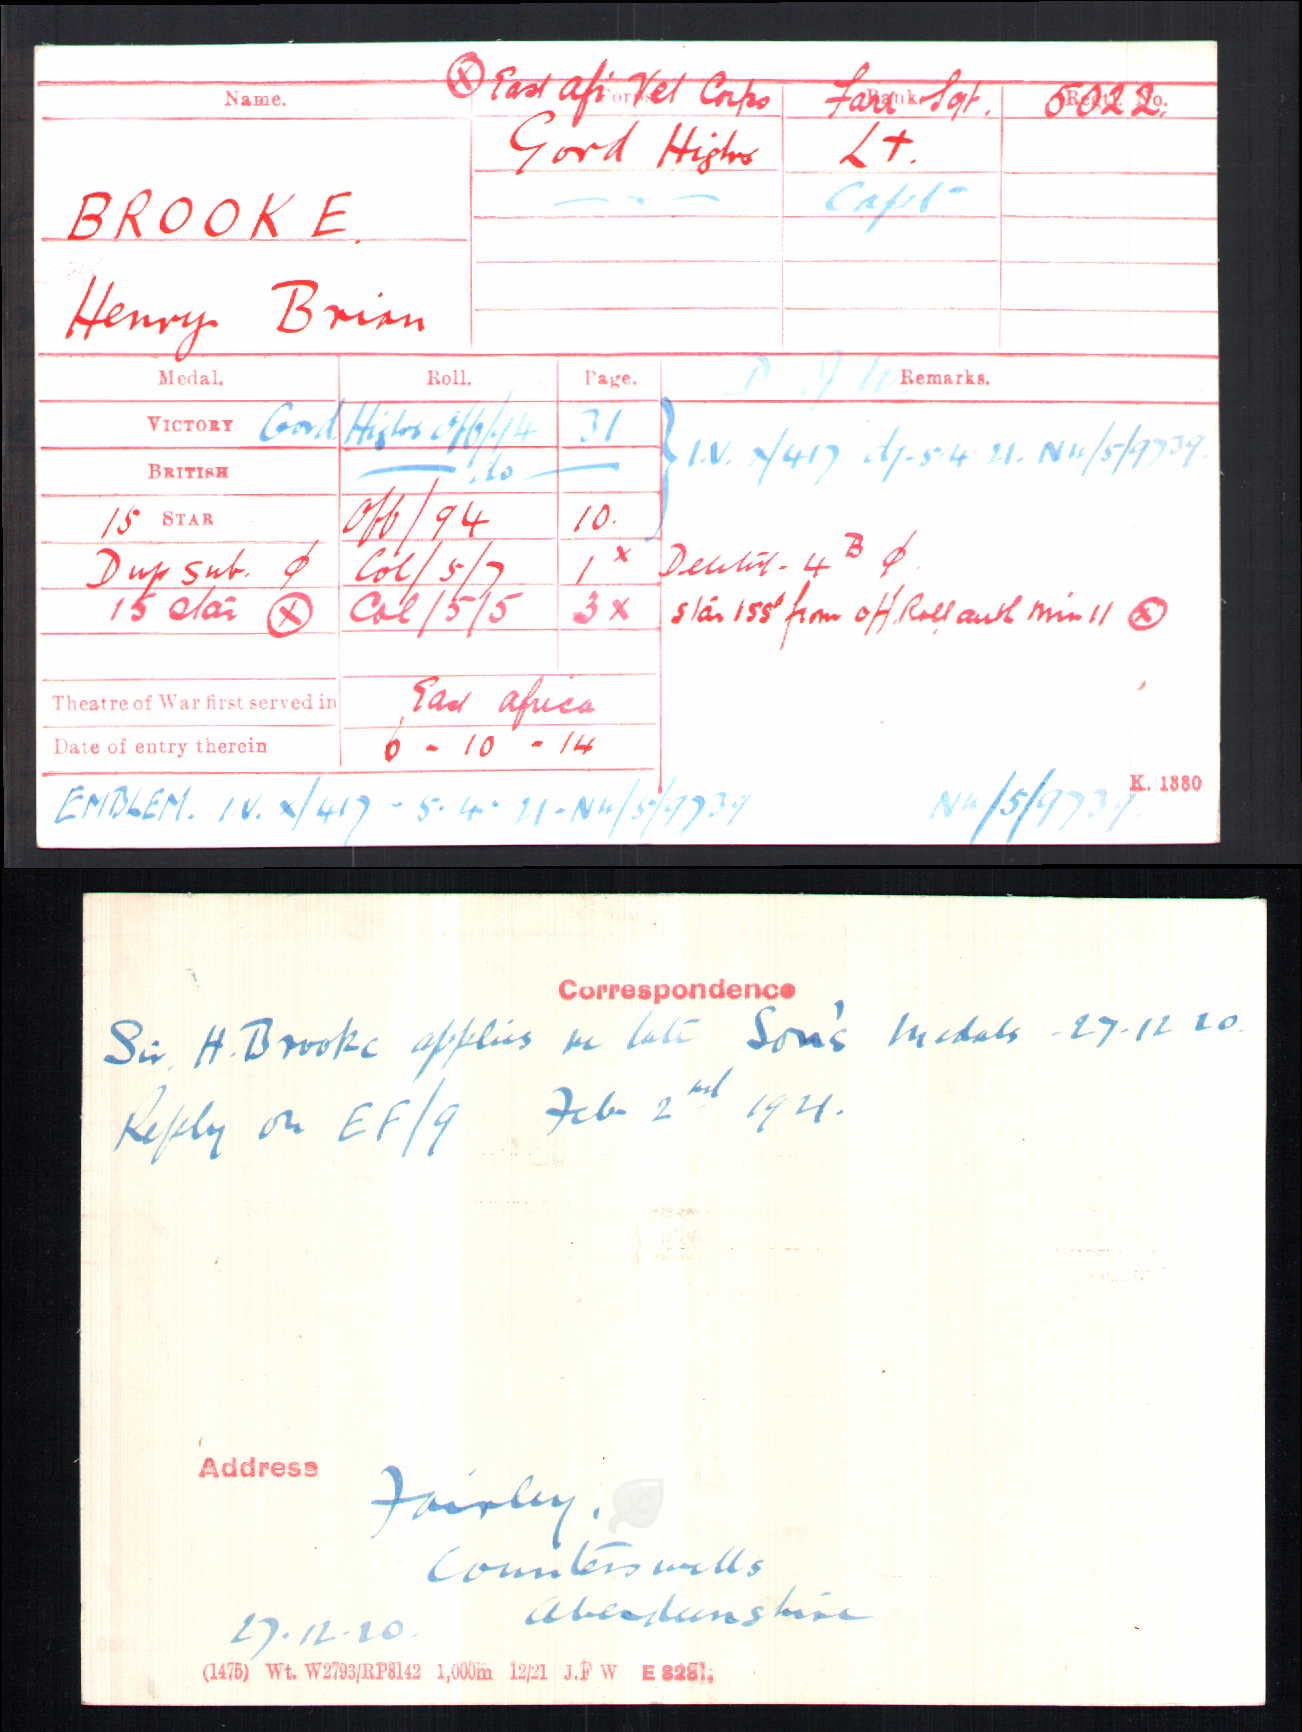 Name. Corps. Rank. Regtl. No.
(X) East Afr Vet Corps Farr Sgt. 5022.
Gord Highrs Lt.
— " — Capt
BROOKE.
Henry Brian
Medal. Roll. Page. Remarks.
VICTORY Gord Highrs Off/94 31
BRITISH — do —
I.V. X/417 d/- 5.4.21. NW/5/9739.
15 STAR Off/94 10.
Dup sub. φ Col/5/7 1 x Deleted - 4 B φ.
15 Star (X) Col/5/5 3 x Star issd from Off. Roll auth Min 11 (X)
Theatre of War first served in East Africa
Date of entry therein 6 - 10 - 14
K. 1380
EMBLEM. IV. X/417 - 5. 4. 21 - NW/5/9739 NW/5/9739.
Correspondence
Sir H. Brooke applies re late Son's Medals - 27-12-20.
Reply on EF/9 Feb 2nd 1921.
Address
Fairley.
Counterswells
Aberdeenshire
27-12-20.
(1475) Wt. W2793/RP8142 1,000m 12/21 J.F W E 8281.